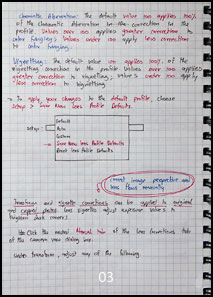 Chromatic Aberration: The default value 100 applies 100%
of the chromatic aberration in the correction in the
profile. Values over 100 applies greater correction to
color fringing. Values under 100 apply less correction
to color fringing.
Vignetting: The default value 100 applies 100% of the
vignetting correction in the profile. Values over 100 applies
greater correction to vignetting; values under 100 apply
less correction to vignetting.
To apply your changes to the default profile, choose
Setup > Save New Lens Profile Defaults
Setup:
Default
Auto
Custom
Save New Lens Profile Defaults
Reset Lens Profile Defaults
correct image perspective and
lens flaws manually
and vignette corrections can be applied to
and
lens vignette adjust exposure values to
brighten dark corners.
Click the Manual tab of the Lens Corrections tab
of the Camera Raw dialog box.
Under Transform, adjust any of the following
03